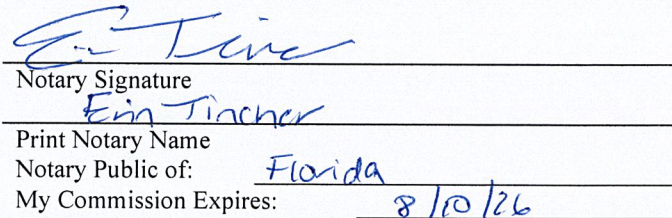 Notary Signature
Erin Tincher
Print Notary Name
Notary Public of: Florida
My Commission Expires: 8/10/26